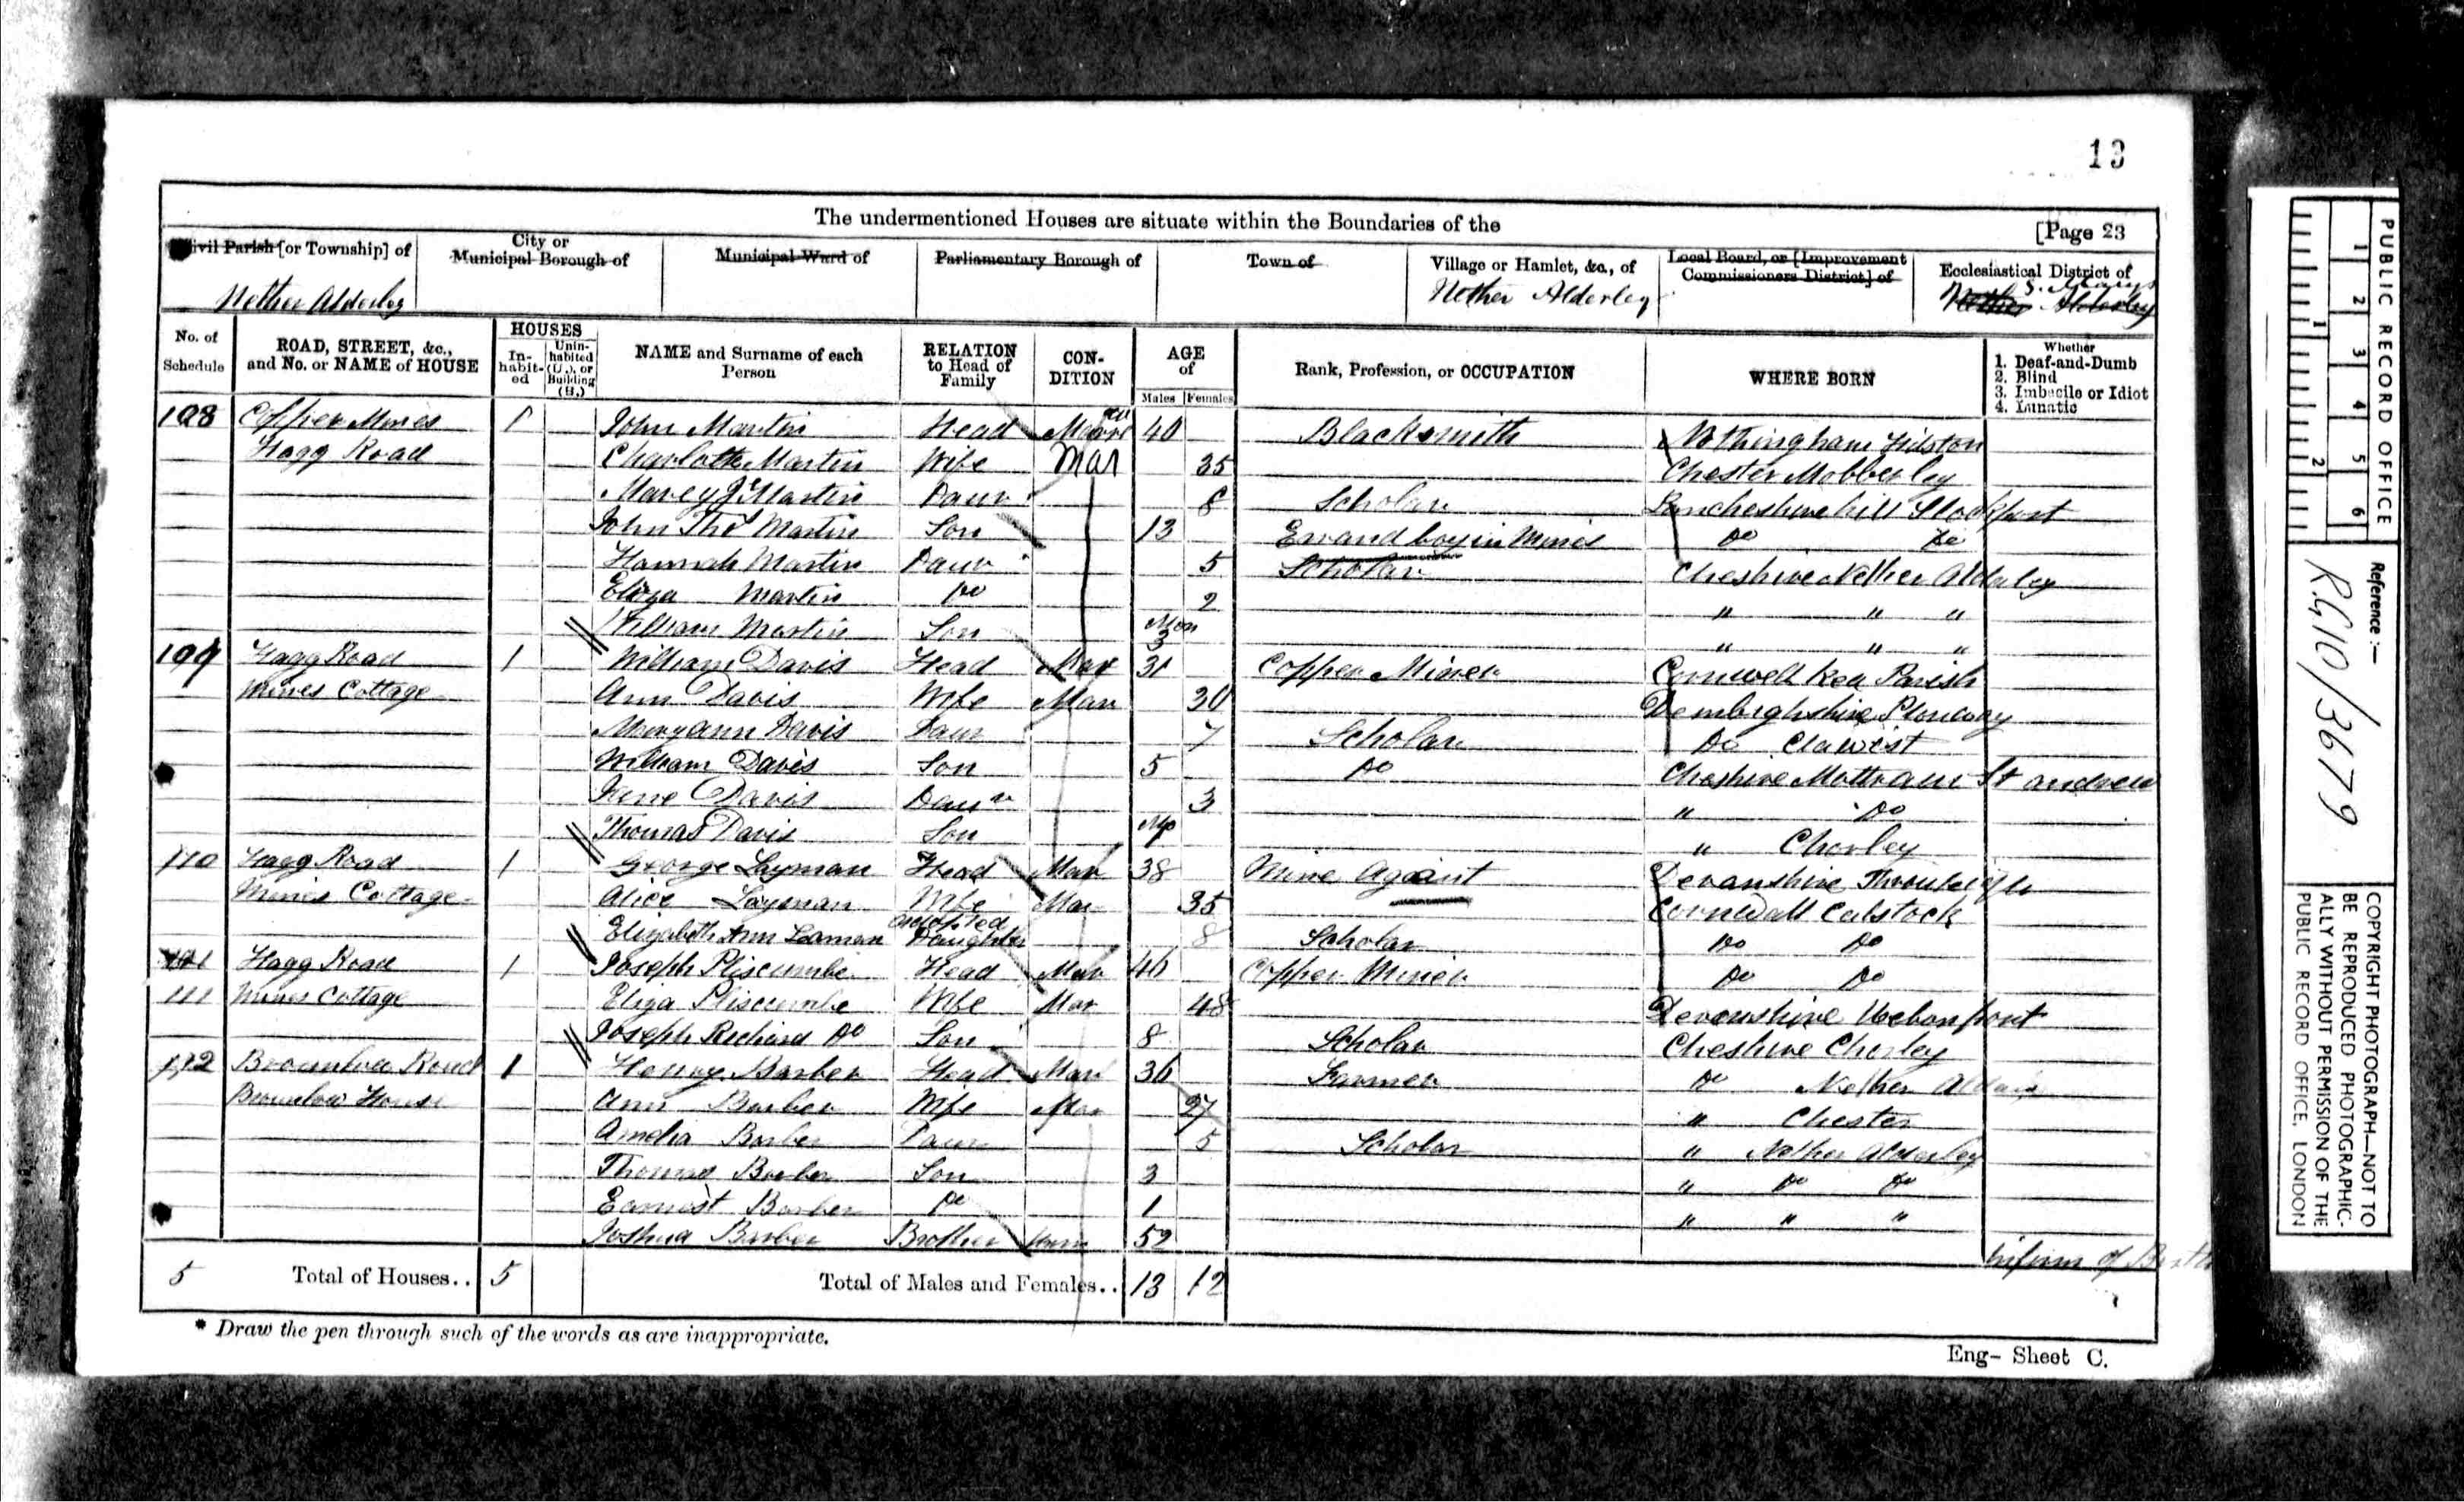 13
The undermentioned Houses are situate within the Boundaries of the
[Page 23
Civil Parish [or Township] of
City or Municipal Borough of
Municipal Ward of
Parliamentary Borough of
Town of
Village or Hamlet, &c., of
Local Board, or [Improvement Commissioners District] of
Ecclesiastical District of
Nether Alderley
Nether Alderley
S. Marys
Nether Alderley
No. of Schedule
ROAD, STREET, &c., and No. or NAME of HOUSE
HOUSES
In-habit-ed
Unin-habited (U.), or Building (B.)
NAME and Surname of each Person
RELATION to Head of Family
CON-DITION
AGE of
Males
Females
Rank, Profession, or OCCUPATION
WHERE BORN
Whether
1. Deaf-and-Dumb
2. Blind
3. Imbecile or Idiot
4. Lunatic
108 Copper Mines 1 John Martin Head Mar 40 Blacksmith Nothingham
Hagg Road Charlotte Martin Wife Mar 35 Chester Mobberley
Martin Daur 8 Scholar Stockport
John Thos Martin Son 13 Errand boy in Mines Do Do
Hannah Martin Daur 5 Scholar Cheshire Nether Alderley
Eliza Martin Do 2 " " "
William Martin Son Mon 3 " " "
109 Hagg Road 1 William Davis Head Mar 31 Copper Miner Cornwell Kea Parish
Mines Cottage Ann Davis Wife Mar 30
Maryann Davis Daur 7 Scholar Do
William Davis Son 5 Do Cheshire Mottram St andrew
Davis Daur 3 " Do
Thomas Davis Son " Chorley
110 Hagg Road 1 George Layman Head Mar 38 Mine Againt Devanshire
Mines Cottage Alice Layman Wife Mar 35 Cornwall Calstock
Elizabeth Ann Laman adopted Daughter 8 Scholar Do Do
Hagg Road 1 Joseph Pliscumbe Head Mar 46 Copper Miner Do Do
111 Mines Cottage Eliza Pliscumbe Wife Mar 48 Devonshire
Joseph Richard Do Son 8 Scholar Cheshire Chorley
112 Road 1 Henry Barber Head Mar 36 Farmer Do Nether
Brownlow House Ann Barber Wife Mar 27 " Chester
Amelia Barber Daur 5 Scholar " Nether Alderley
Thomas Barber Son 3 " Do Do
Earnest Barber Do 1 " " "
Joshua Barber Brother Unm 52
of Birth
5 Total of Houses.. 5 Total of Males and Females.. 13 12
* Draw the pen through such of the words as are inappropriate.
Eng- Sheet C.
PUBLIC RECORD OFFICE
1 2 3 4 5 6
1 2
Reference :-
R.G.10/3679
COPYRIGHT PHOTOGRAPH—NOT TO
BE REPRODUCED PHOTOGRAPHIC-
ALLY WITHOUT PERMISSION OF THE
PUBLIC RECORD OFFICE, LONDON